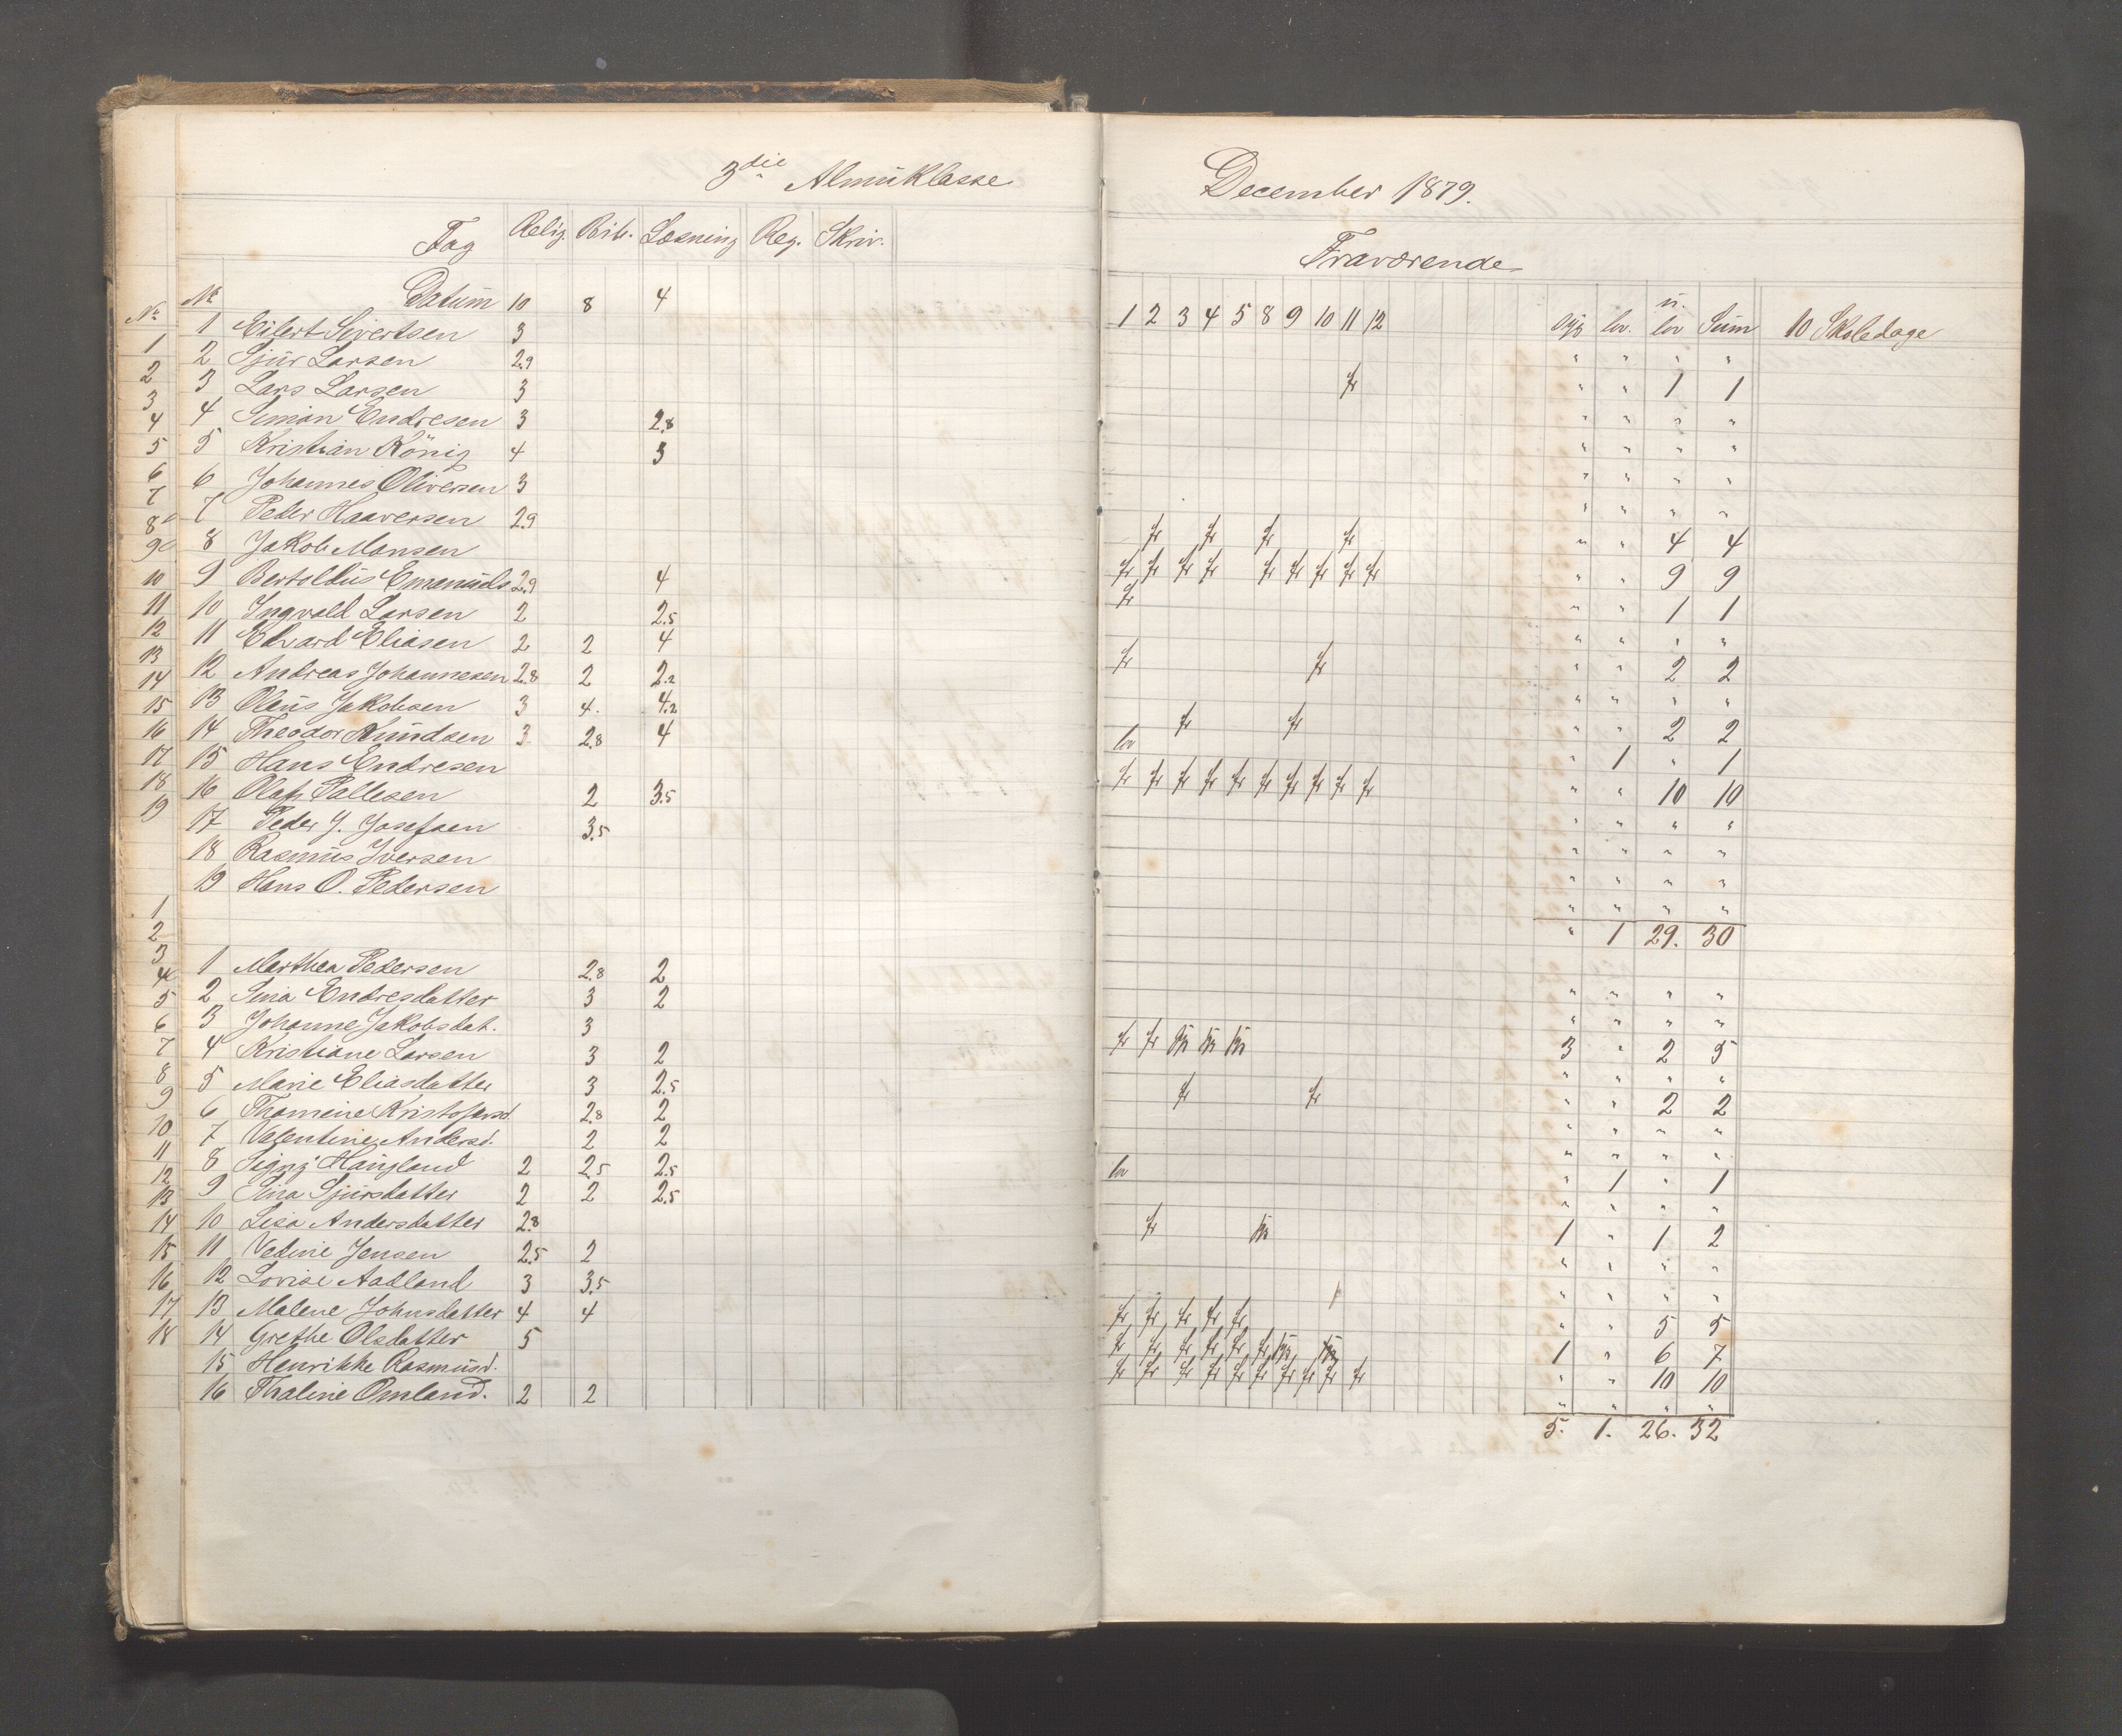 3die Almuklasse
Fag Relig. Bib. Læsning Reg. Skriv.
No. Datum 10 8 4
1 Eilert Sivertsen 3
2 Sjur Larsen 2.9
3 Lars Larsen 3
4 Simon Endresen 3 2.8
5 Kristian König 4 3
6 Johannes Oliversen 3
7 Peder Haaversen 2.9
8 Jakob Monsen
9 Bertoldus Emanuels 2.9 4
10 Ingvald Larsen 2 2.5
11 Edvard Eliasen 2 2 4
12 Andreas Johannesen 2.8 2 2.2
13 Olaus Jakobsen 3 4. 4.2
14 Theodor Knudsen 3 2.8 4
15 Hans Endresen
16 Olaf Pallesen 2 3.5
17 Peder J. Josefsen 3.5
18 Rasmus Iversen
19 Hans O. Pedersen
1 Marthea Pedersen 2.8 2
2 Sina Endresdatter 3 2
3 Johanne Jakobsdat. 3
4 Kristiane Larsen 3 2
5 Marie Eliasdatter 3 2.5
6 Thomine Kristofersd. 2.8 2
7 Valentine Andersd. 2 2
8 Signy Haugland 2 2.5 2.5
9 Sina Sjursdatter 2 2 2.5
10 Lisa Andersdatter 2.8
11 Vedine Jensen 2.5 2
12 Lovise Aadland 3 3.5
13 Malene Johnsdatter 4 4
14 Grethe Olsdatter 5
15 Henrikke Rasmusd.
16 Thaline Omland. 2 2
No.
1
2
3
4
5
6
7
8
9
10
11
12
13
14
15
16
17
18
19
1
2
3
4
5
6
7
8
9
10
11
12
13
14
15
16
17
18
December 1879.
Fraværende
1 2 3 4 5 8 9 10 11 12 syg lov. u. lov Sum 10 Skoledage
" " " "
fr " " 1 1
" " " "
" " " "
" " " "
" " " "
fr fr fr fr " " 4 4
fr fr fr fr fr fr fr fr fr " " 9 9
fr " " 1 1
" " " "
fr fr " " 2 2
" " " "
fr fr " " 2 2
lov " 1 " 1
fr fr fr fr fr fr fr fr fr fr " " 10 10
" " " "
" " " "
" " " "
" " " "
" 1 29. 30
" " " "
" " " "
fr fr 3 " 2 5
" " " "
fr fr " " 2 2
" " " "
" " " "
lov " 1 " 1
" " " "
fr 1 " 1 2
" " " "
" " " "
fr fr fr fr fr " " 5 5
fr fr fr fr fr fr 1 " 6 7
fr fr fr fr fr fr fr fr fr fr " " 10 10
" " " "
5. 1. 26. 32